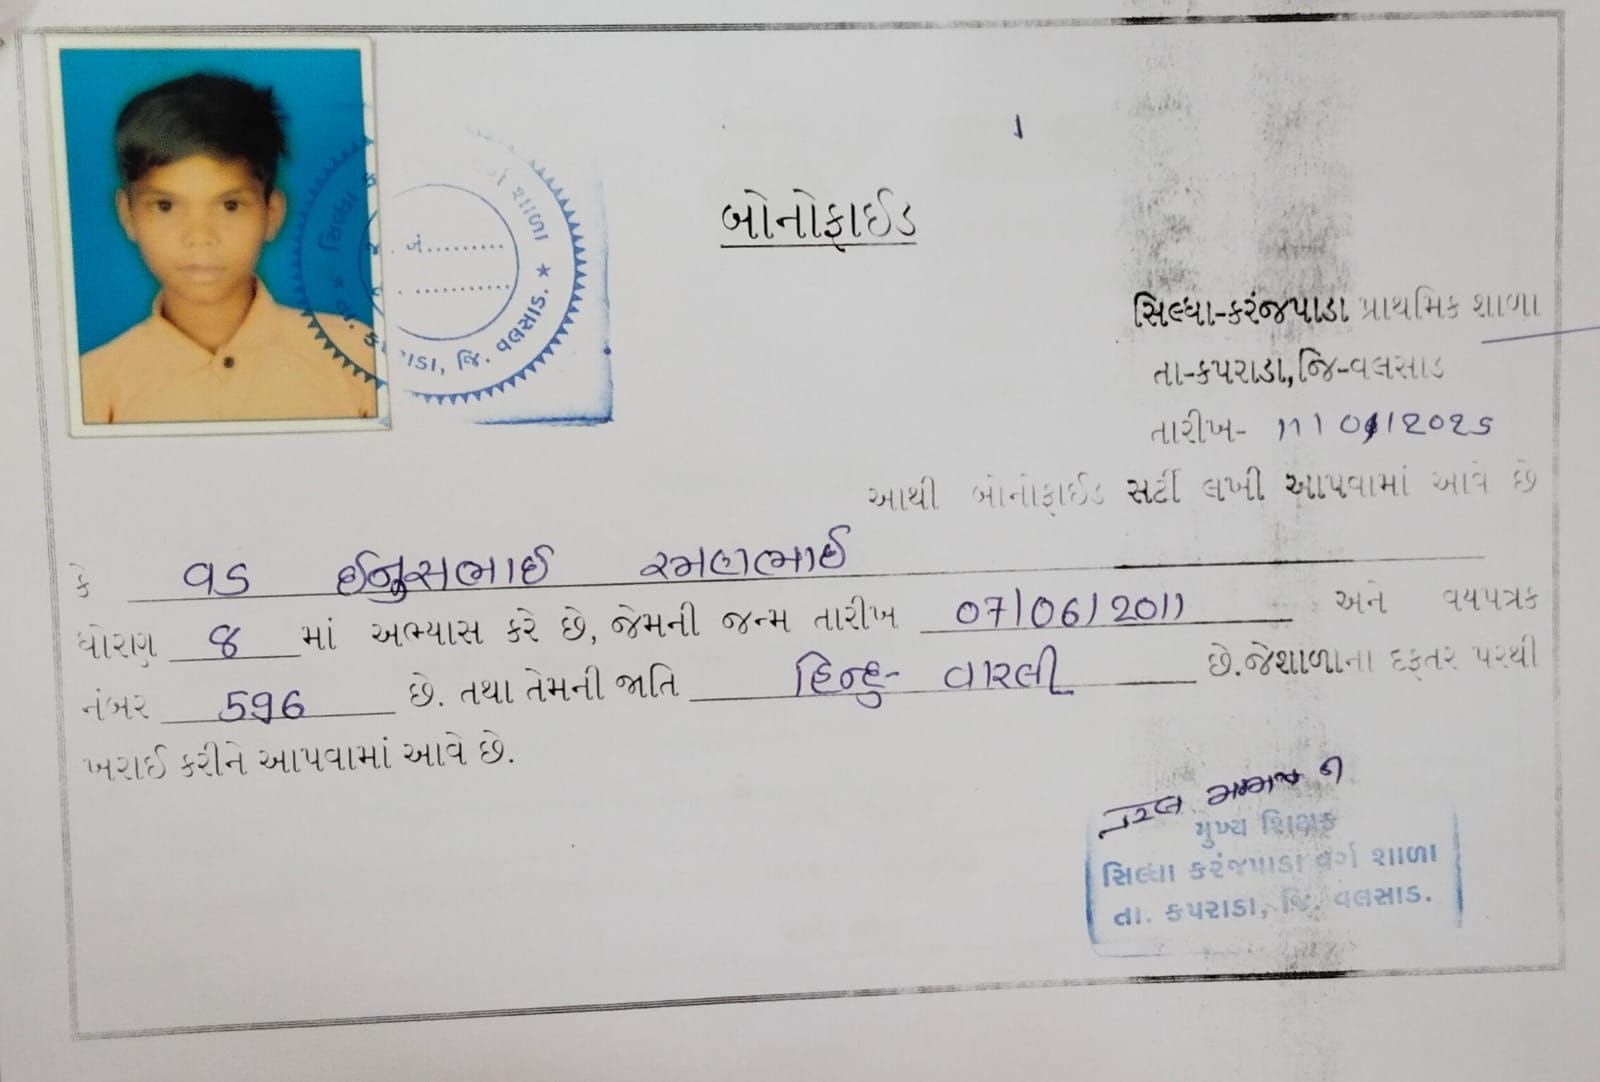 બોનોફાઈડ
સિલ્ધા-કરંજપાડા પ્રાથમિક શાળા
તા-કપરાડા,જિ-વલસાડ
તારીખ- 11/01/2025
આથી બોનોફાઈડ સર્ટી લખી આપવામાં આવે છે
કે વડ ઈનુસભાઈ રમણભાઈ
ધોરણ 8 માં અભ્યાસ કરે છે, જેમની જન્મ તારીખ 07/06/2011 અને વયપત્રક
નંબર 596 છે. તથા તેમની જાતિ હિન્દુ- વારલી છે.જેશાળાના દફતર પરથી
ખરાઈ કરીને આપવામાં આવે છે.
મુખ્ય શિક્ષક
સિલ્ધા કરંજપાડા વર્ગ શાળા
તા. કપરાડા, જિ. વલસાડ.
સિલ્ધા શાળા
જિ. વલસાડ.